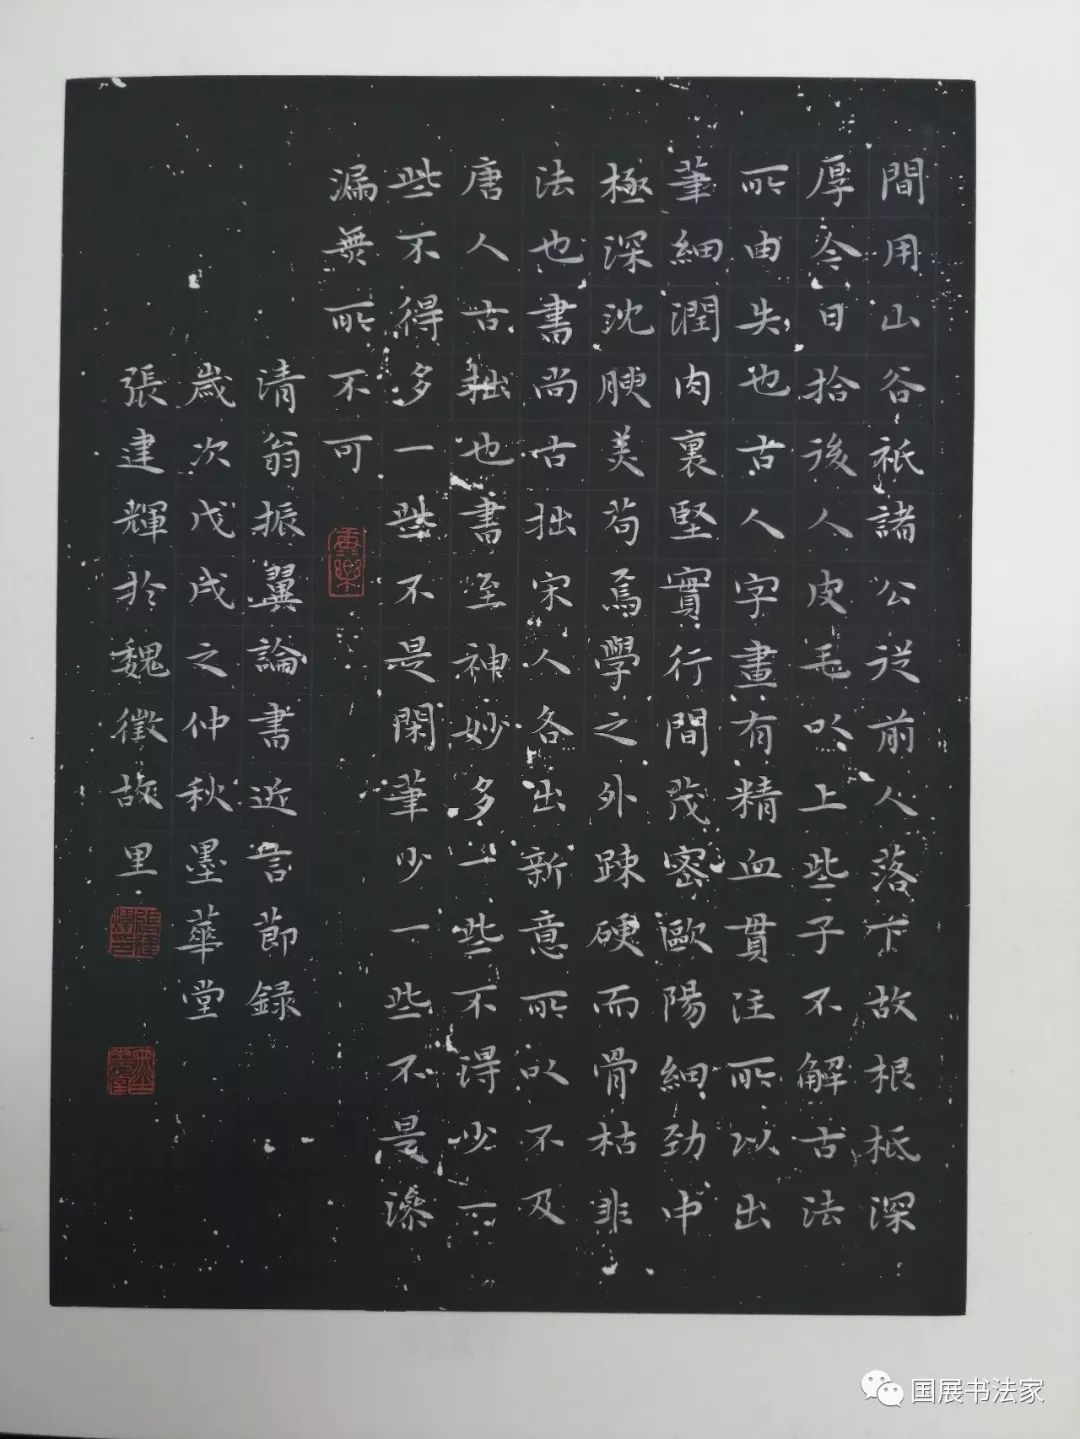 間用山谷祇諸公從前人落卞故根柢深
厚今日拾後人皮毛以上些子不解古法
所由失也古人字畫有精血貫注所以出
筆細潤肉裏堅實行間茂密歐陽細劲中
極深沈腴美苟焉學之外踈硬而骨枯非
法也書尚古拙宋人各出新意所以不及
唐人古拙也書至神妙多一些不得少一
些不得多一些不是閑筆少一些不是滲
漏無所不可
清翁振翼論書近言節録
歲次戊戌之仲秋墨華堂
張建輝於魏徵故里
国展书法家